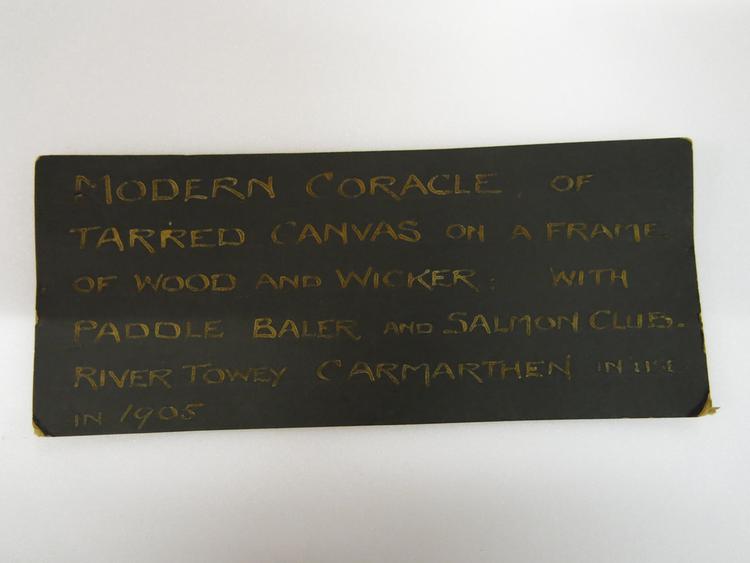 MODERN CORACLE, OF
TARRED CANVAS ON A FRAME
OF WOOD AND WICKER: WITH
PADDLE BALER AND SALMON CLUB.
RIVER TOWEY CARMARTHEN IN USE
IN 1905